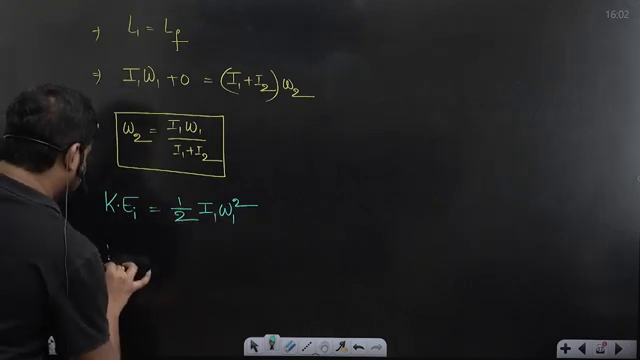 16:02
⇒ Lᵢ = L_f
⇒ I₁ω₁ + 0 = (I₁+I₂)ω₂
ω₂ = I₁ω₁ / I₁+I₂
K.Eᵢ = 1/2 I₁ω₁²